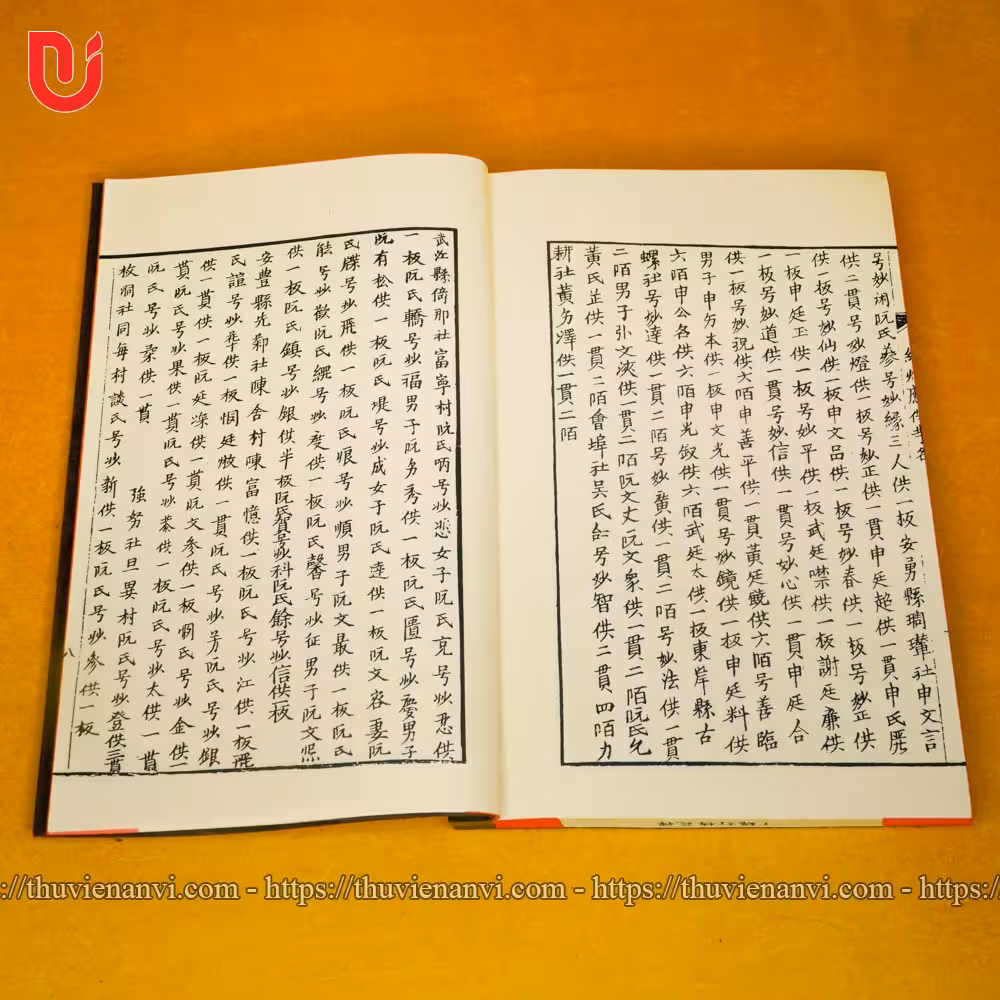 号妙湖阮氏參号妙緣三人供一板安男縣琱瓘社申文言
供二貫号妙燈供一板号妙正供一貫申廷超供一貫申氏
供一板号妙仙供一板申文品供一板号妙春供一板号妙正供
一板申廷玉供一板号妙平供一板武廷噤供一板謝廷廉供
一板号妙道供一貫号妙信供一貫号妙心供一貫申廷合
供一板号妙祝供六陌申善平供一貫黃廷鐃供六陌号善臨
男子申方本供一板申文光供一貫号妙鏡供一板申廷料供
六陌申公各供六陌申光叙供六陌武廷太供一板東岸縣古
螺社号妙達供一貫二陌号妙黃供一貫二陌号妙法供一貫
二陌男子引文浹供一貫二陌阮文丈阮文衆供一貫二陌阮氏允
黃氏芷供一貫二陌會埠社吴氏号妙智供二貫四陌力
耕社黃方澤供一貫二陌
武江縣倚那社富寧村阮氏昞号妙悲女子阮氏克号妙忍供
一板阮氏轎号妙福男子阮方秀供一板阮氏匱号妙慶男子
阮有松供一板阮氏堤号妙成女子阮氏逹供一板阮文容妻阮
氏牒号妙飛供一板阮氏恨号妙順男子阮文最供一板阮氏
能号妙歡阮氏縲号妙度供一板阮氏馨号妙征男子阮文
供一板阮氏鎮号妙銀供半板阮氏貿号妙科阮氏餘号妙信供一板
安豊縣先鄰社陳舍村陳富憶供一板阮氏号妙江供一板
氏諠号妙供一板憪廷供一貫阮氏号妙芳阮氏号妙銀
供一貫供一板阮廷滐供一貫阮文參供一板憪氏号妙金供一
貫阮氏号妙果供一貫阮氏号妙供一板阮氏号妙太供一貫
阮氏号妙桑供一貫 強努社旦異村阮氏号妙登供三貫
枚洞社同每村談氏号妙新供一板阮氏号妙參供一板
八
https://thuvienanvi.com - https://thuvienanvi.com - https://thuvienanvi.com